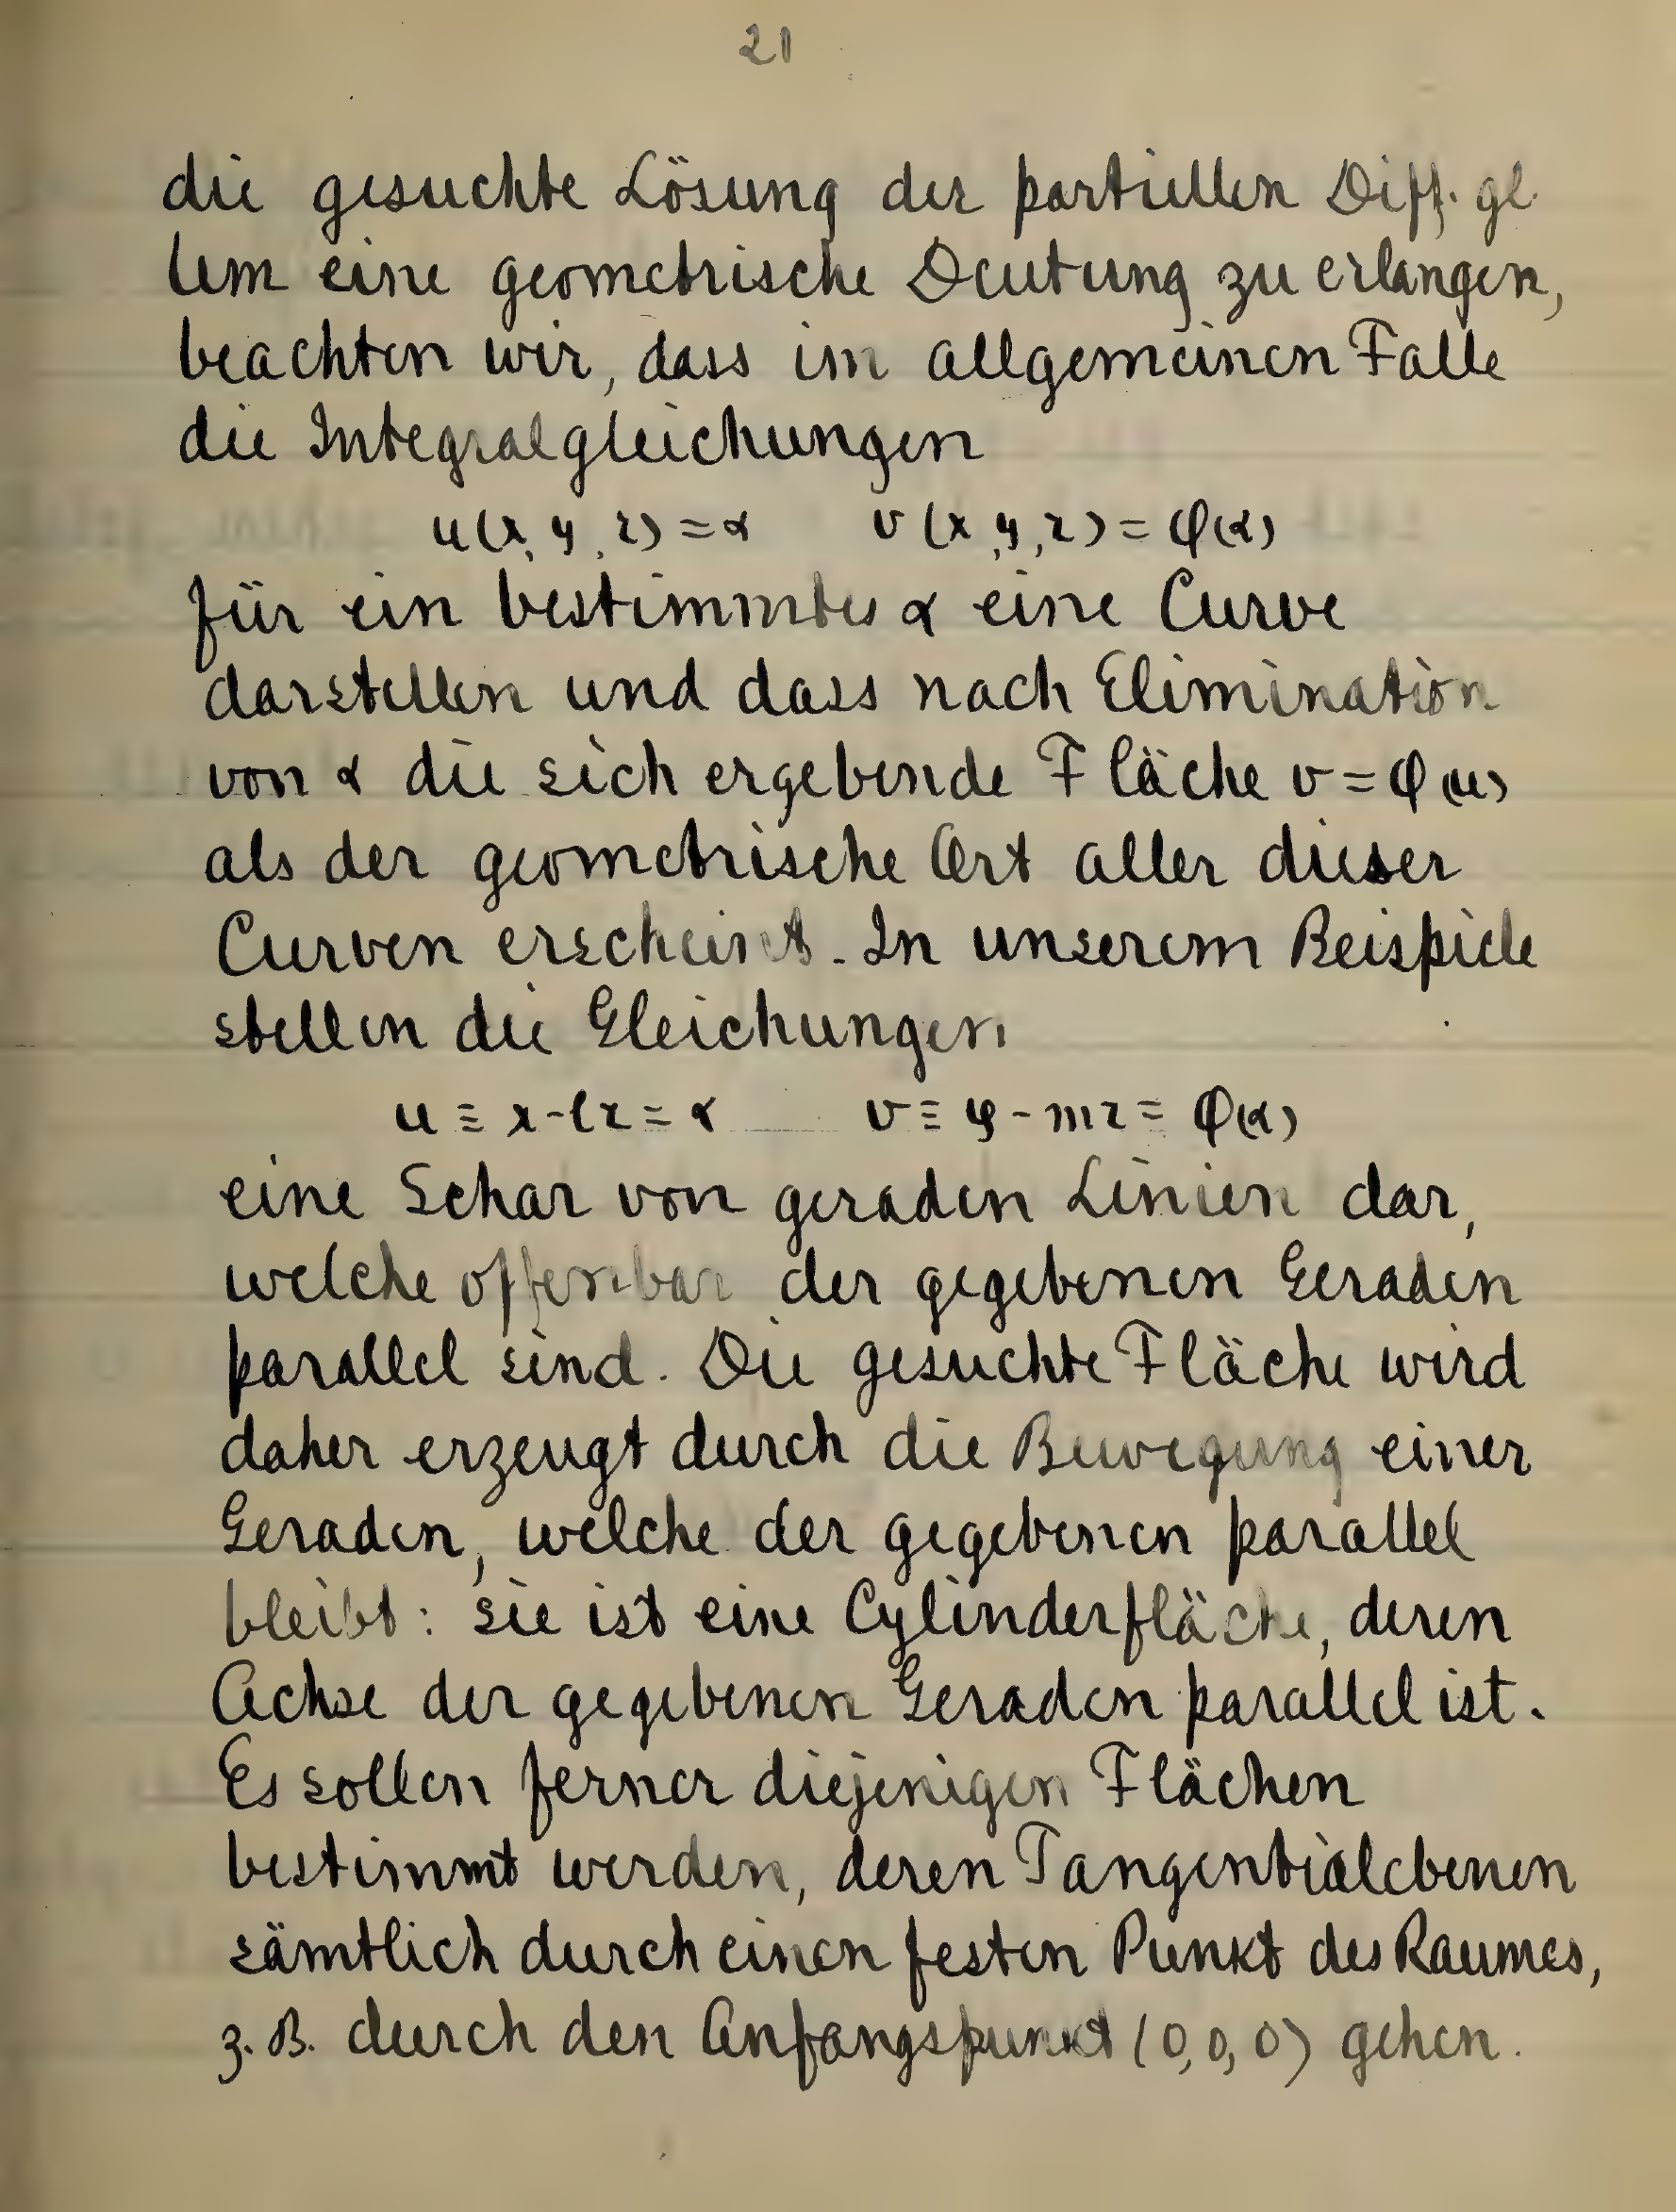 20
die gesuchte Lösung der partiellen Diff. gl.
Um eine geometrische Deutung zu erlangen,
beachten wir, dass im allgemeinen Falle
die Integralgleichungen
u(x, y, z) = α v(x, y, z) = φ(α)
für ein bestimmtes α eine Curve
darstellen und dass nach Elimination
von α die sich ergebende Fläche v = φ(u)
als der geometrische Ort aller dieser
Curven erscheint. In unserem Beispiele
stellen die Gleichungen
u ≡ x - lz = α v ≡ y - mz = φ(α)
eine Schar von geraden Linien dar,
welche offenbar der gegebenen Geraden
parallel sind. Die gesuchte Fläche wird
daher erzeugt durch die Bewegung einer
Geraden, welche der gegebenen parallel
bleibt: sie ist eine Cylinderfläche, deren
Achse der gegebenen Geraden parallel ist.
Es sollen ferner diejenigen Flächen
bestimmt werden, deren Tangentialebenen
sämtlich durch einen festen Punkt des Raumes,
z. B. durch den Anfangspunkt (0, 0, 0) gehen.